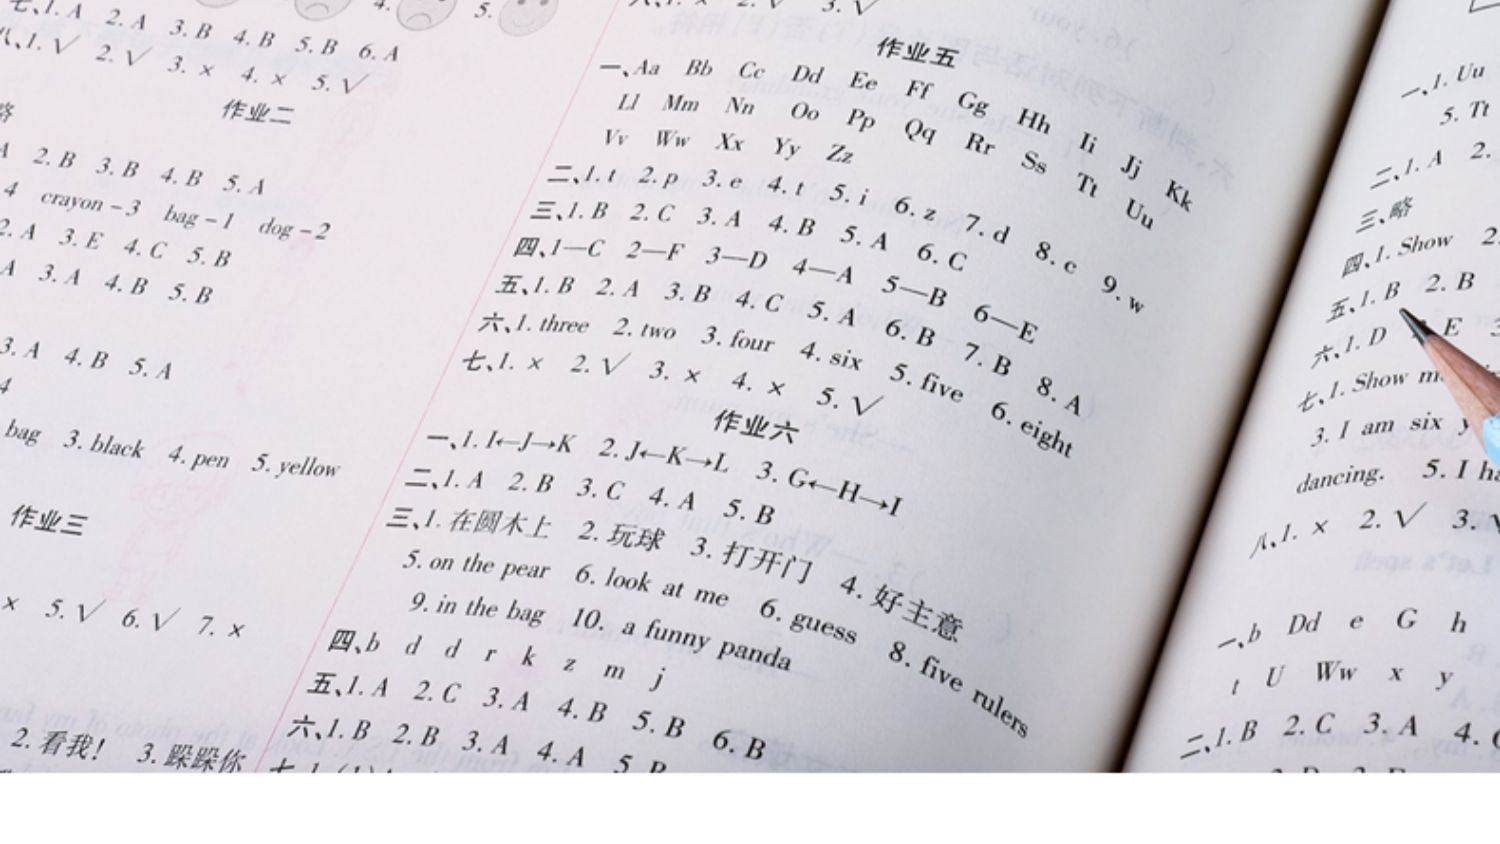 七、1. A 2. A 3. B 4. B 5. B 6. A
八、1. √ 2. √ 3. × 4. × 5. √
作业二
略
A 2. B 3. B 4. B 5. A
4 crayon－3 bag－1 dog－2
2. A 3. E 4. C 5. B
A 3. A 4. B 5. B
3. A 4. B 5. A
4
bag 3. black 4. pen 5. yellow
作业三
× 5. √ 6. √ 7. ×
2. 看我！ 3. 跺跺你
4. 5.
3. √
作业五
一、Aa Bb Cc Dd Ee Ff Gg Hh Ii Jj Kk
Ll Mm Nn Oo Pp Qq Rr Ss Tt Uu
Vv Ww Xx Yy Zz
二、1. t 2. p 3. e 4. t 5. i 6. z 7. d 8. c 9. w
三、1. B 2. C 3. A 4. B 5. A 6. C
四、1—C 2—F 3—D 4—A 5—B 6—E
五、1. B 2. A 3. B 4. C 5. A 6. B 7. B 8. A
六、1. three 2. two 3. four 4. six 5. five 6. eight
七、1. × 2. √ 3. × 4. × 5. √
作业六
一、1. I←J→K 2. J←K→L 3. G←H→I
二、1. A 2. B 3. C 4. A 5. B
三、1. 在圆木上 2. 玩球 3. 打开门 4. 好主意
5. on the pear 6. look at me 6. guess 8. five rulers
9. in the bag 10. a funny panda
四、b d d r k z m j
五、1. A 2. C 3. A 4. B 5. B 6. B
六、1. B 2. B 3. A 4. A 5. B
一、1. Uu
5. Tt
二、1. A 2.
三、略
四、1. Show 2.
五、1. B 2. B
六、1. D E 3
七、1. Show
3. I am six
dancing. 5. I
八、1. × 2. √ 3.
一、b Dd e G h
t U Ww x y
二、1. B 2. C 3. A 4.